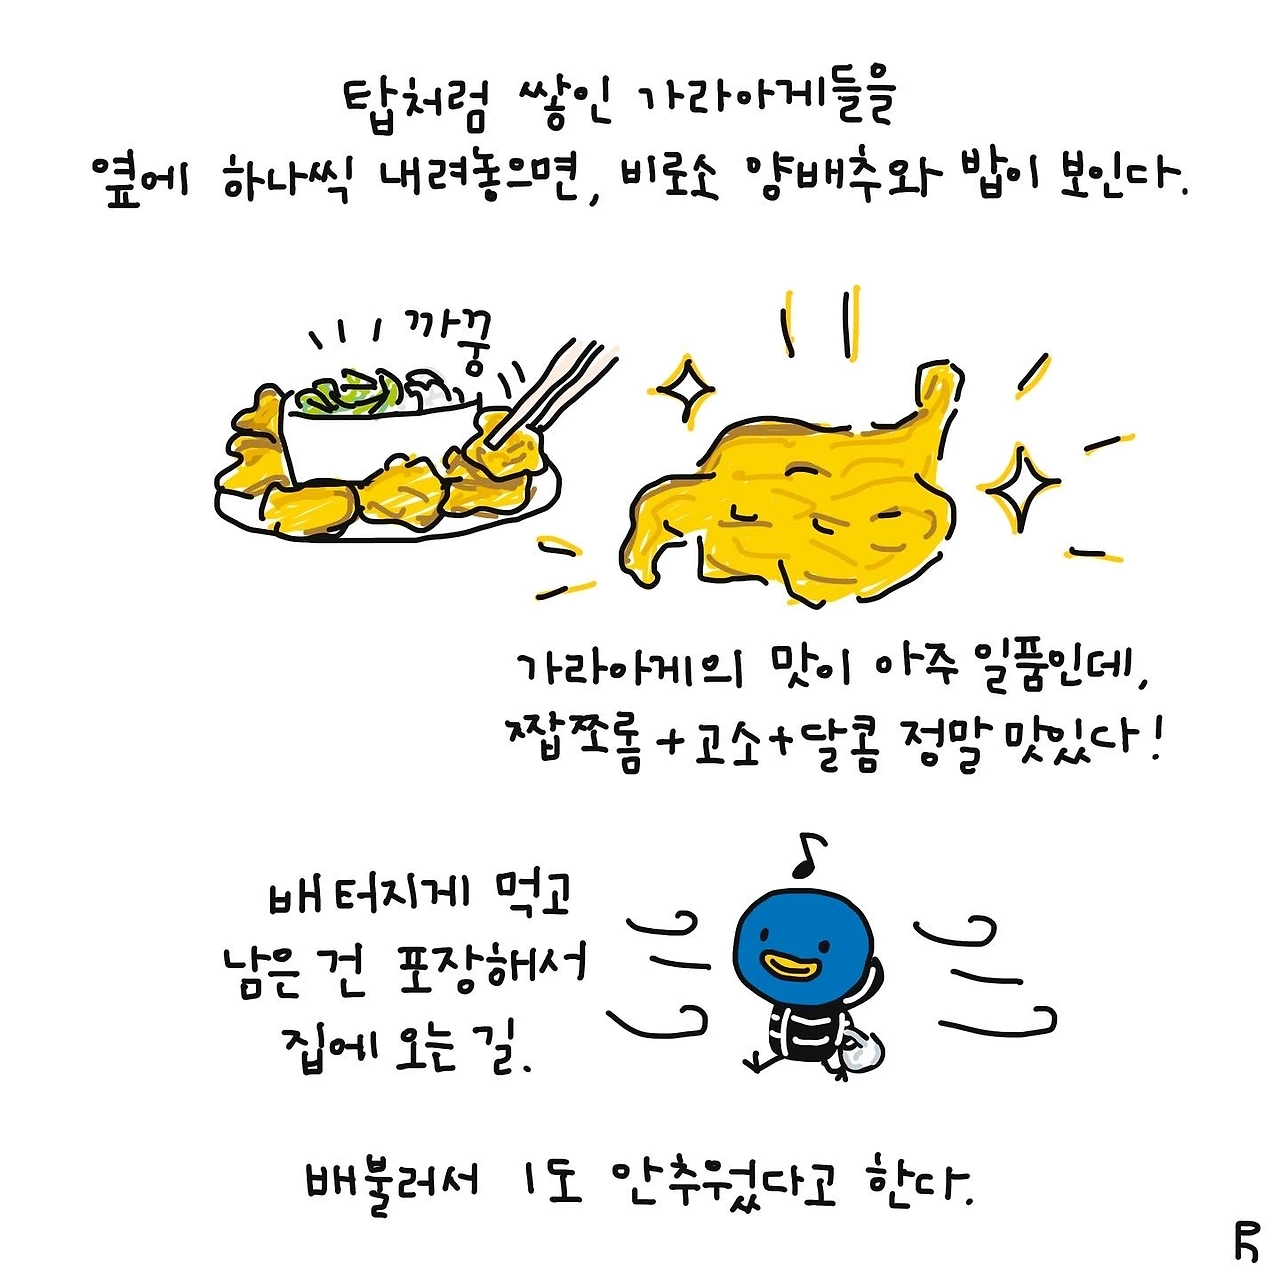 탑처럼 쌓인 가라아게들을
옆에 하나씩 내려놓으면, 비로소 양배추와 밥이 보인다.
까꿍
가라아게의 맛이 아주 일품인데,
짭쪼롬+고소+달콤 정말 맛있다!
배터지게 먹고
남은 건 포장해서
집에 오는 길.
배불러서 1도 안추웠다고 한다.